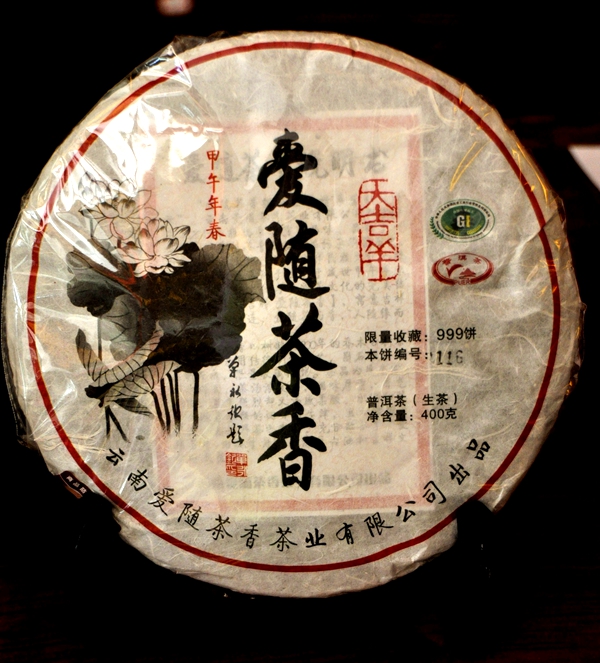 甲午年春
爱随茶香
天吉羊
GI
限量收藏：999饼
本饼编号：116
普洱茶（生茶）
净含量：400克
云南爱随茶香茶业有限公司出品